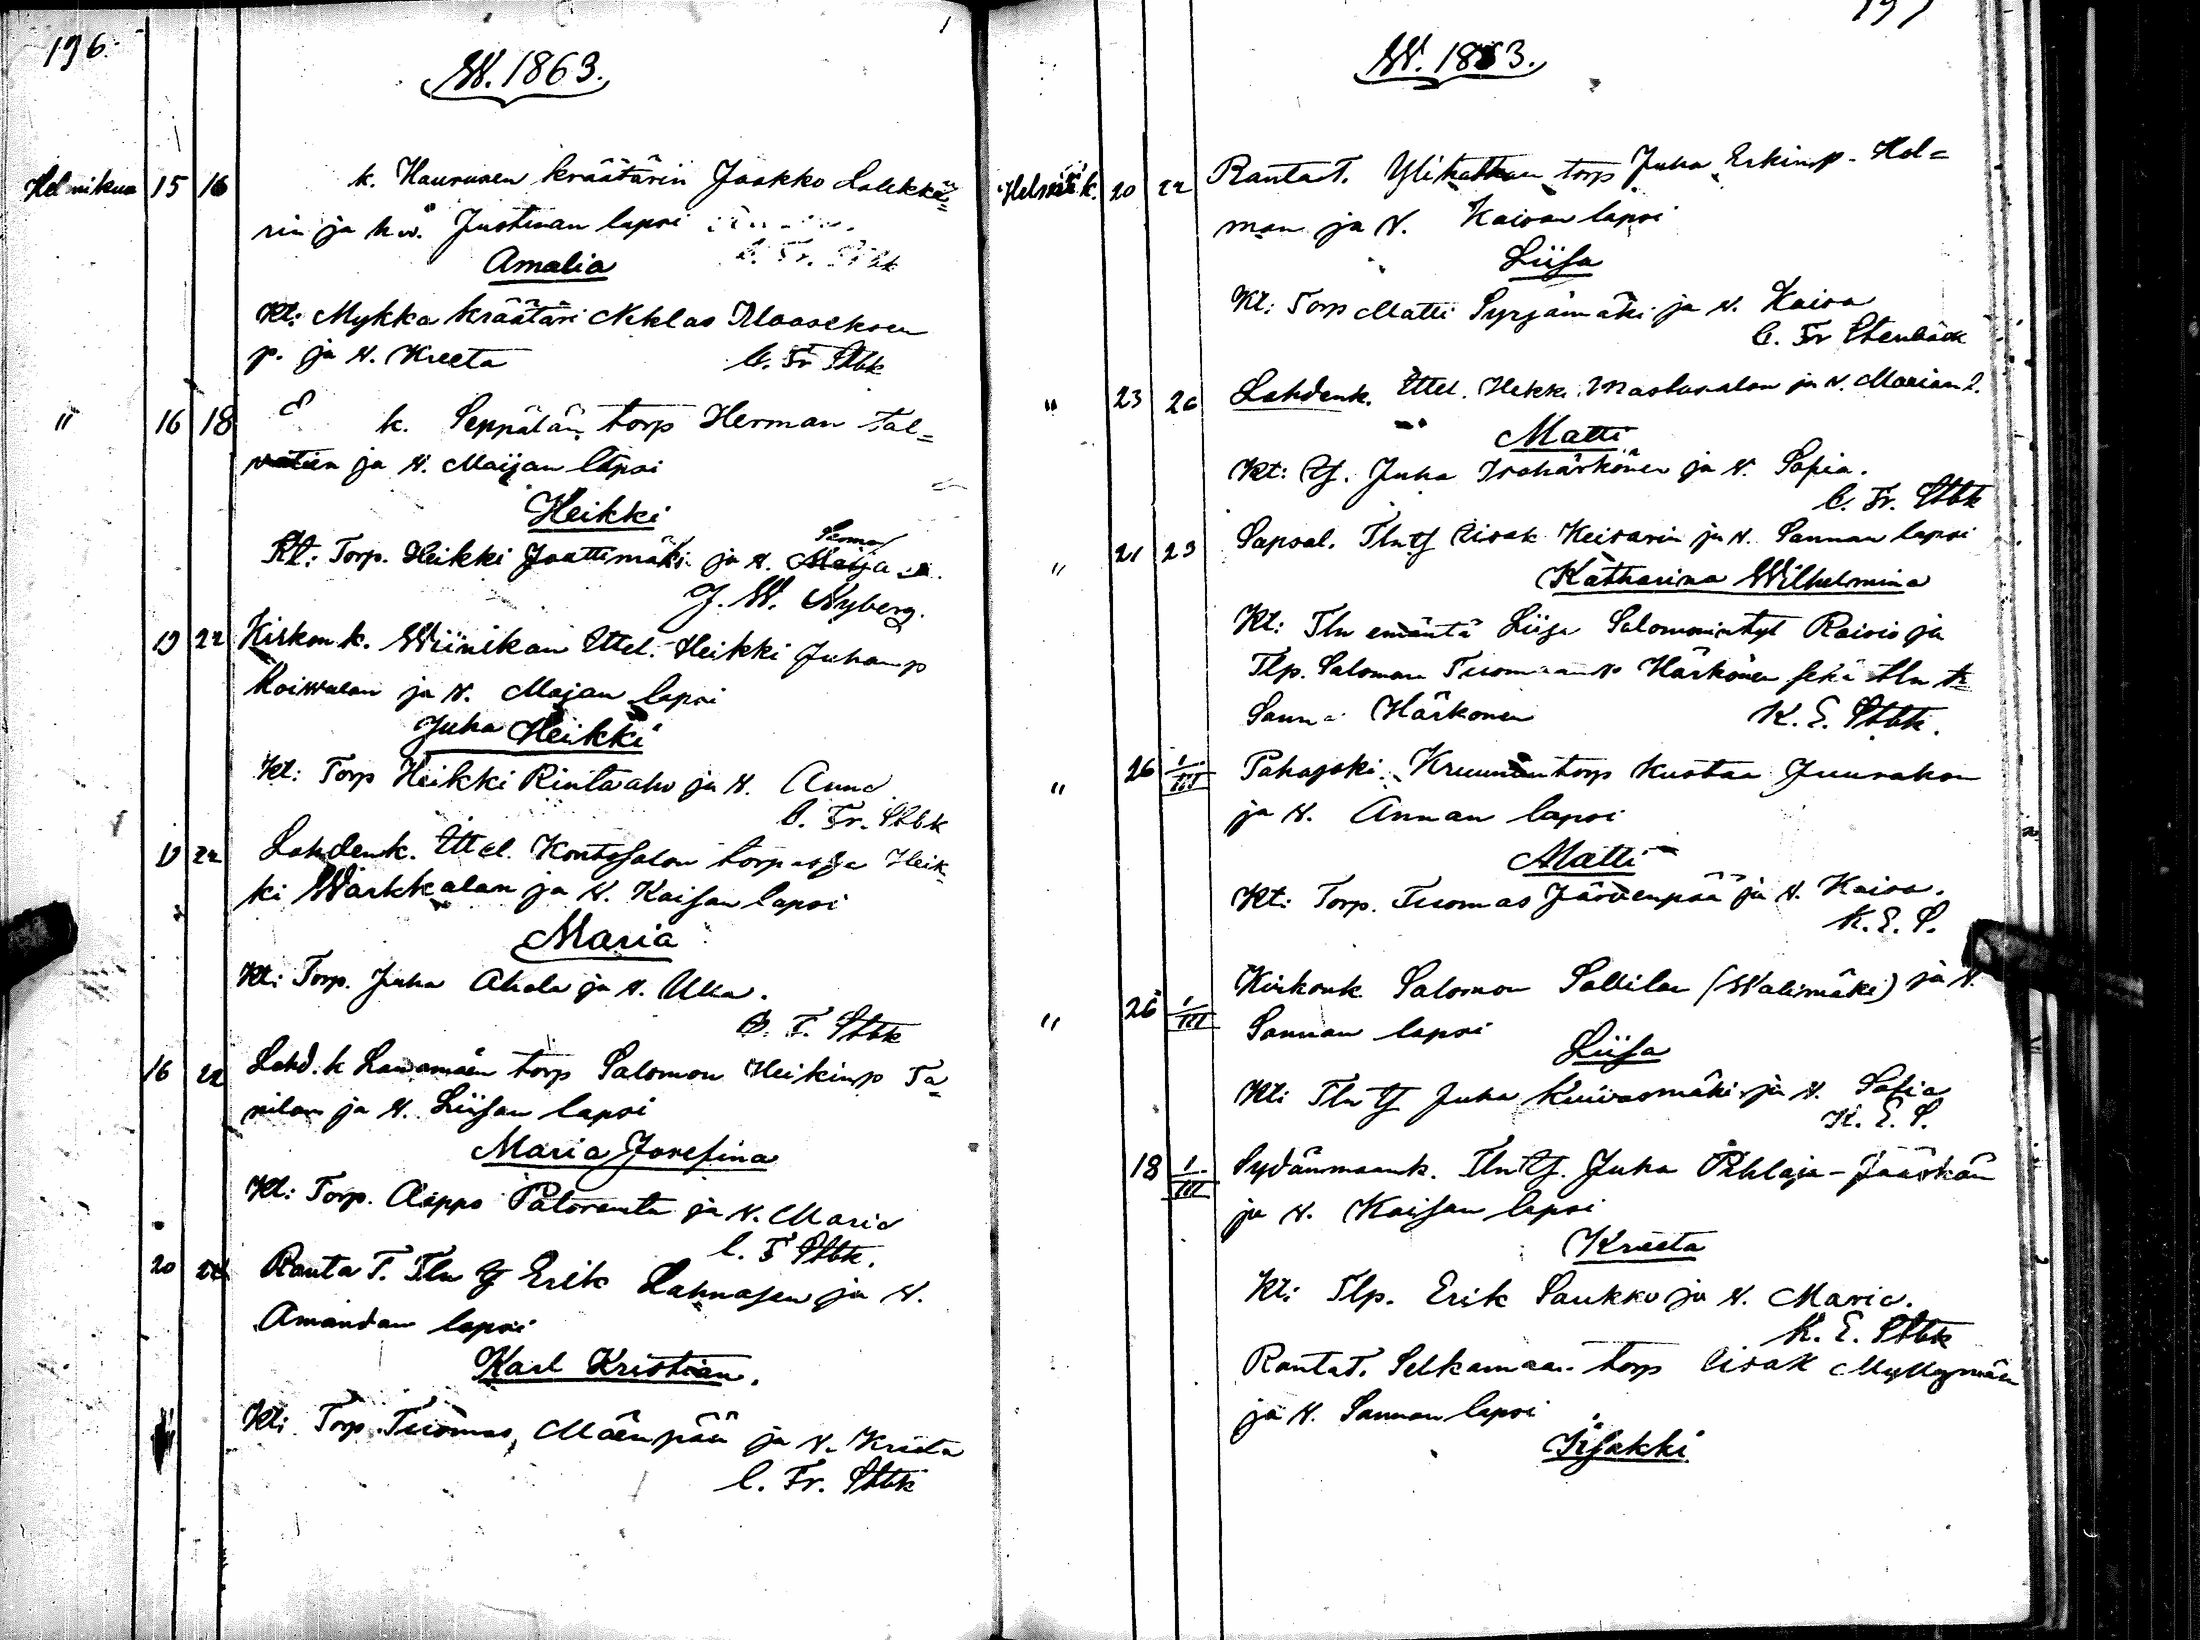 196.
W. 1863.
Helmikuu 15 16 k. Haurusen kräätärin Jaakko
rin ja hw. Justinan lapsi
C. Fr. Stbk
Amalia
Kt: Mykkä kräätäri Niklas
p. ja W. Kreeta C. Fr Stbk
" 16 18 E k. Seppälän torp Herman Tal=
ja W. Maijan lapsi
Heikki
Sanna
Kt: Torp. Heikki Jaattimäki ja W. Maija
J. W. Nyberg.
19 22 Kirkonk. Wiinikan Ittel. Heikki Juhanp
Koiwulan ja W. Majan lapsi
Juha Heikki
Kt: Torp Heikki Rintaaho ja W. Anna
C. Fr. Stbk
19 22 Lahdenk. Ittel. Kontosalon torpasta Heik=
ki Warkkalan ja W. Kaisan lapsi
Maria
Kt: Torp. Juha Ahola ja W. Ulla.
C. F. Stbk
16 22 Lahd. k torp Salomon Heikinp Ta=
nilan ja W. Liisan lapsi
Maria Josefina
Kt: Torp. Aappo Patoranta ja W. Maria
C. F Stbk.
20 22 Ranta T. Tln Erik Lahnasen ja W.
Amandan lapsi
Karl Kristian.
Kt: Torp. Tuomas Mäenpää ja W. Kreeta
C. Fr. Stbk
W. 1863.
Helmik. 20 22 Ranta T. torp Juha Erkinp. Hol=
man ja W. Kaisan lapsi
Liisa
Kt: Torp Matti Syrjämäki ja W. Kaisa
C. Fr Stenbäck
" 23 26 Lahdenk. Ittel. Heikki ja W. Marian l.
Matti
Kt: Juha Isohärkönen ja W. Sofia.
C. Fr. Stbk
" 21 23 Sapsal. Tln Eisak Keisarin ja W. Sannan lapsi
Katharina Wilhelmina
Kt: Tln emäntä Liisa Salomonintyt Raisio ja
Tlp. Salomon Härkönen sekä tln tr
Sanna Härkönen K. E. Stbk.
" 26 1/III Pahajoki. Kruunun torp Kustaa Juurakon
ja W. Annan lapsi
Matti
Kt: Torp. Tuomas Järvenpää ja W. Kaisa.
K. E. S.
" 26 1/III Kirkonk Salomon Sallilan (Walimäki) ja W.
Sannan lapsi
Liisa
Kt: Tln Juha Kuivasmäki ja W. Sofia
K. E. S.
18 1/III Sydänmaank. Tln Juha Pihlaja-Jääskän
ja W. Kaisan lapsi
Kreeta
Kt: Tlp. Erik Saukko ja W. Maria.
K. E. Stbk
Ranta T. Selkämaan torp Eisak Myllymäen
ja W. Sannan lapsi
Iisakki